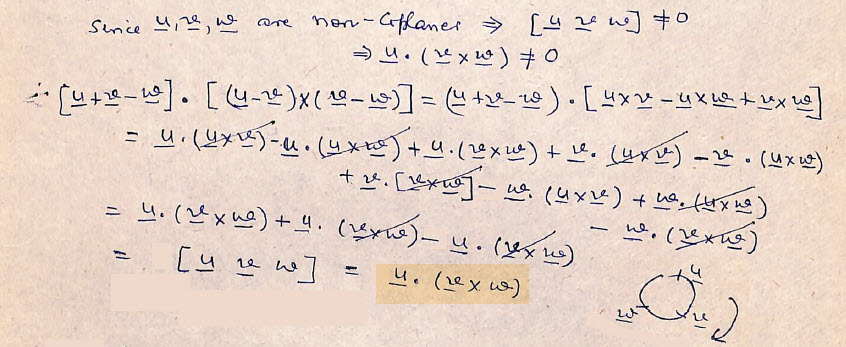 Since u, v, w are non-Coplaner ⇒ [u v w] ≠ 0
⇒ u . (v × w) ≠ 0
∴ [u + v - w] . [(u - v) × (v - w)] = (u + v - w) . [u × v - u × w + v × w]
= u . (u × v) - u . (u × w) + u . (v × w) + v . (u × v) - v . (u × w)
+ v . [v × w] - w . (u × v) + w . (u × w)
- w . (v × w)
= u . (v × w) + u . (v × w) - u . (v × w)
= [u v w] = u . (v × w)
u
w v